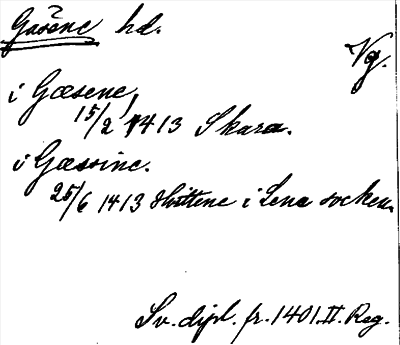 Gäsene hd.
Vg.
i Gæsene,
15/2 1413 Skara.
i Gæssine.
25/6 1413 Hvittene i Lena socken.
Sv. dipl. fr. 1401. II. Reg.